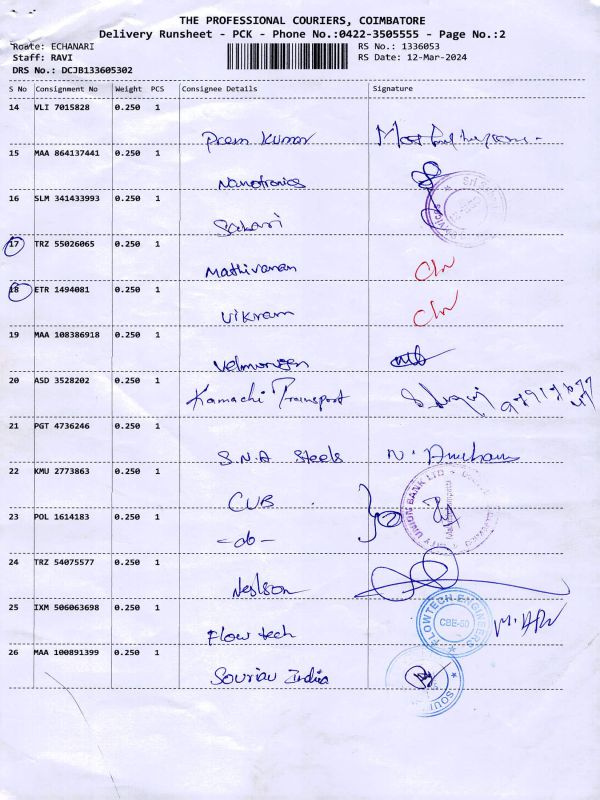 THE PROFESSIONAL COURIERS, COIMBATORE
Delivery Runsheet - PCK - Phone No.:0422-3505555 - Page No.:2
Route: ECHANARI
RS No.: 1336053
Staff: RAVI
RS Date: 12-Mar-2024
DRS No.: DCJB133605302
S No Consignment No Weight PCS Consignee Details Signature
14 VLI 7015828 0.250 1
Prem Kumar
15 MAA 864137441 0.250 1
Nanotronics
16 SLM 341433993 0.250 1
17 TRZ 55026065 0.250 1
Mathivanan
18 ETR 1494081 0.250 1
Vikram
19 MAA 108386918 0.250 1
Velmurugan
20 ASD 3528202 0.250 1
Kamachi Transport
21 PGT 4736246 0.250 1
S.N.A Steels
22 KMU 2773863 0.250 1
CUB
UNION BANK LTD
23 POL 1614183 0.250 1
-do-
24 TRZ 54075577 0.250 1
25 IXM 506063698 0.250 1
Flow tech
FLOWTECH ENGINEERS
CBE-50
26 MAA 100891399 0.250 1
Souriau India